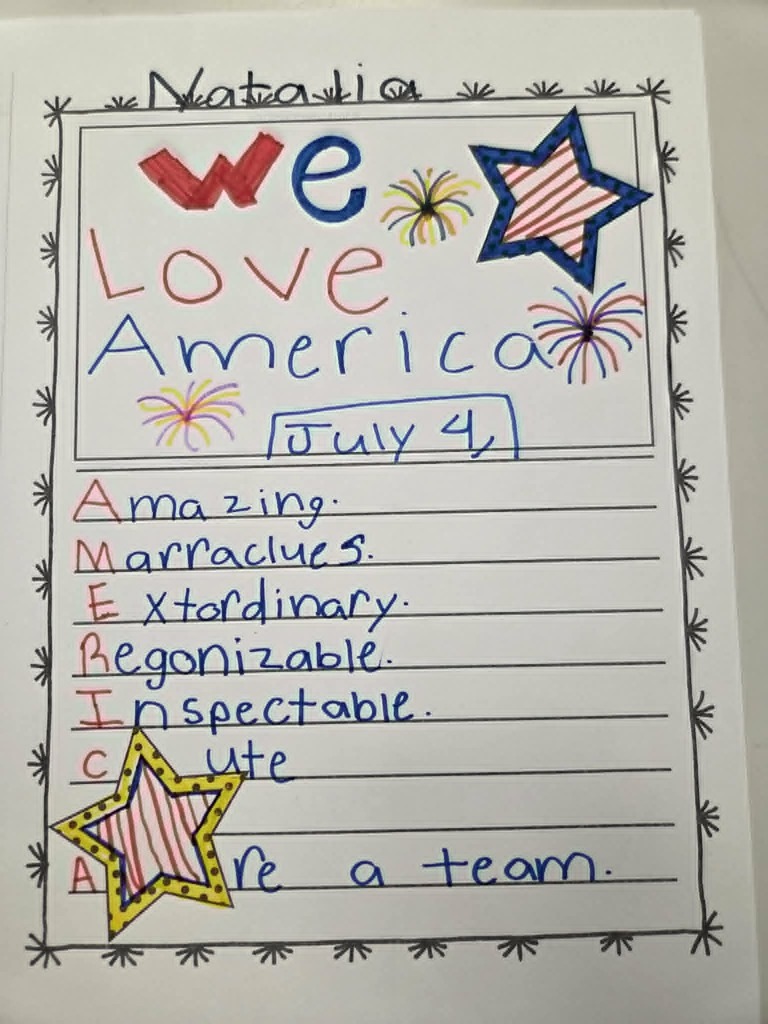 Natalia
We
Love
America
July 4,
Amazing.
Marraclues.
Extordinary.
Regonizable.
Inspectable.
Cute
Are a team.